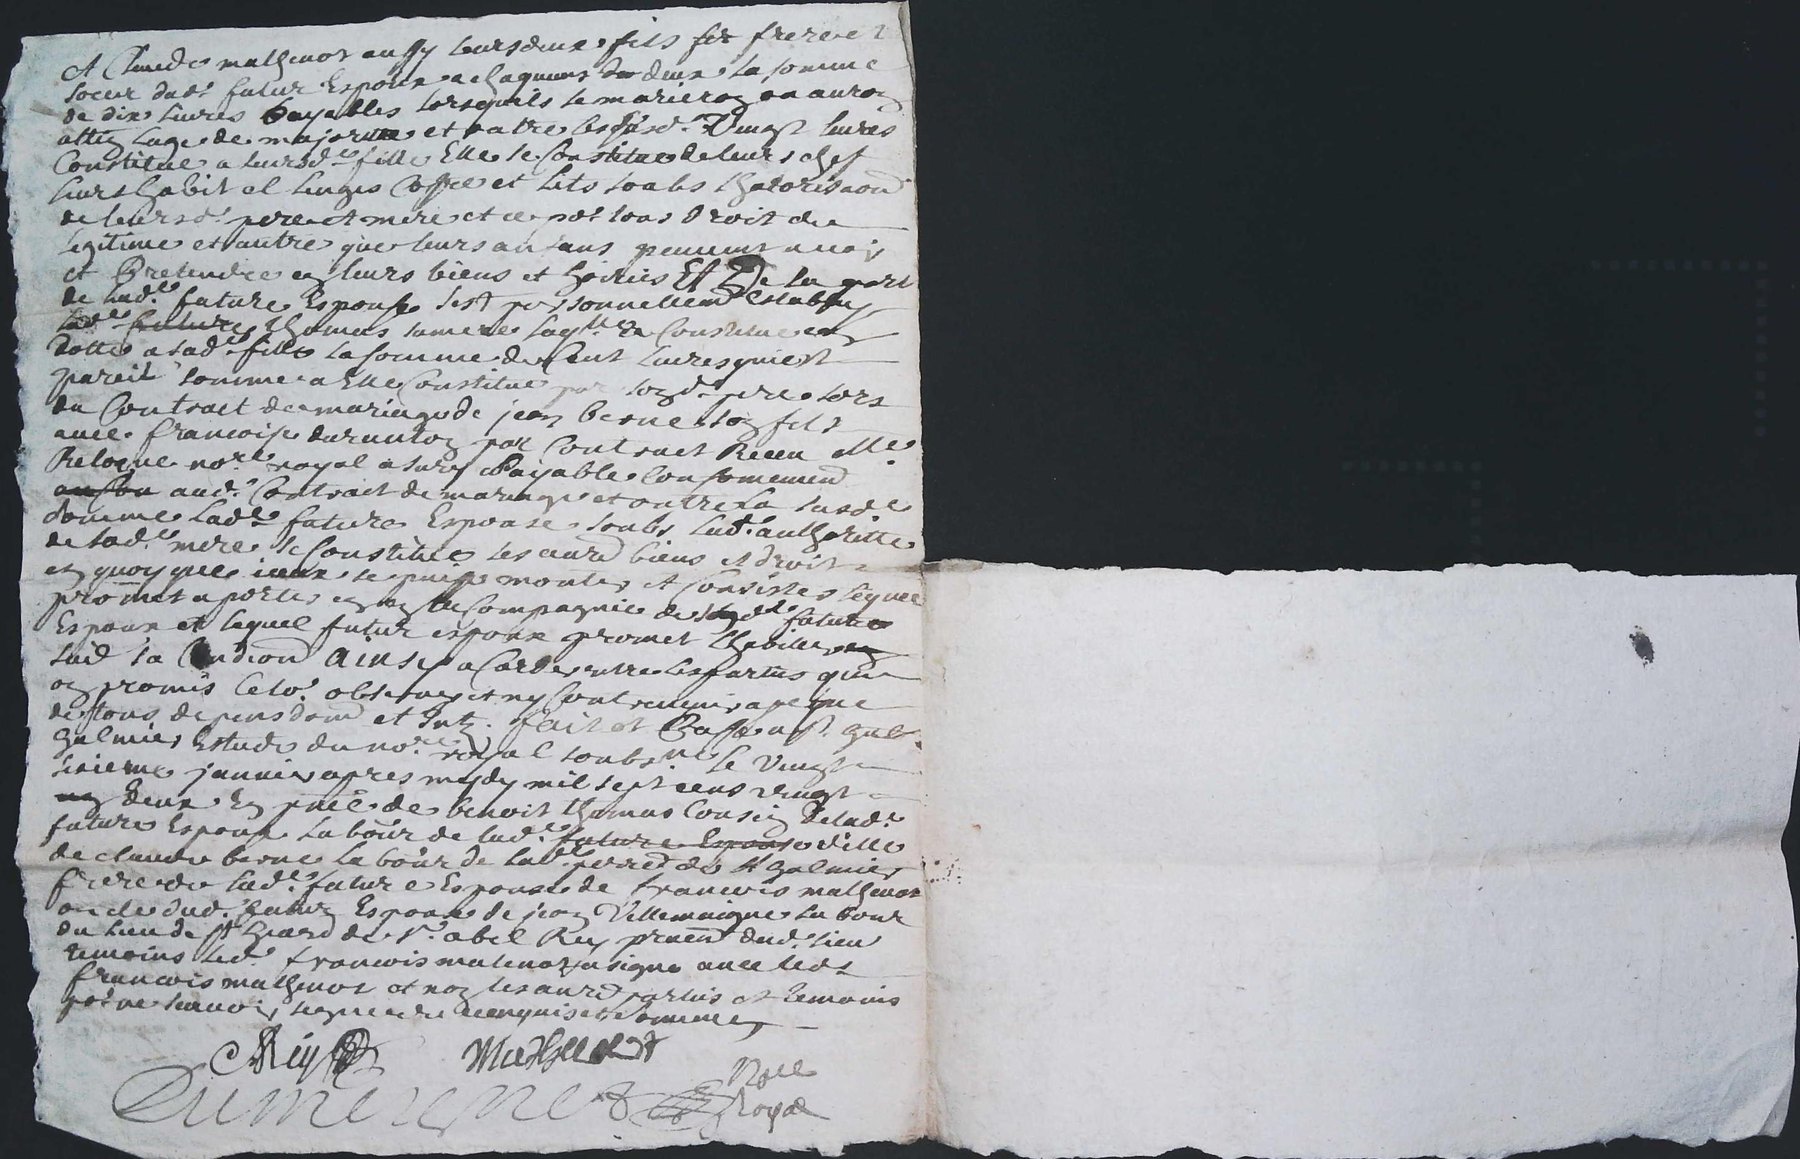 A Claude mathenot aussy leursdeux fils frere et
soeur dudt futur Espoux a chaquuns deux la somme
de dix livres payables lorsquils se marieron ou auron
attin lage de majorite et outre les susd. Vingt livres
Constitue a leursd. fille Elle se Constitue de leurs chef
leurs habit et linges Coffre et lits soubs lhatorisaon
de leursd. pere et mere et ce pot tous droit de
legitime et autre que leurs ansans peuvent avoir
et Pretendre en leurs biens et hoiries Et De la part
de lad.e future Espouse sest personnellemt establye
lad.e future thomas sa mere laqlle Constitue en
dotte a lad.e fille la somme de Cent livres quiest
pareil somme a Elle Constitue par sond. pere lors
du Contrait de mariage de jean berne son fils
avec francoise duranton par Contrait Receu Me
Relogue no.re royal a sury Payable Confomement
aud. Contrait de mariage et outre la susd.e
somme lad.e future Espouse soubs lad. authoritte
de sad.e mere se Constitue ses autres biens et droit
en quoy que iceux se puisse monter et Consister lequel
promet aporter en la Compagnie de sond. futur
Espoux et lequel futur espoux promet lhabiller
suid sa Condion Ainsy acorde entre les parties qui
on promis Celo. observer et ny Contrevenir a peine
de tous depens dom et Intz. fait et Passe a st. gal-
galmier Estude du no.re royal soubs.ne le Vingt
sixieme janvier apres mydy mil sept cens vingt
deux En pnce de benoit thomas Cousin De lad.e
future Espouse laboûr de lad.e future Espouse ville
de claude berne laboûr de lad.e perred de st galmier
frere de lad.e future Espouse de francois mathenot
oncle dud. futur Espoux de jean Villemaigne labour
du lieu de st hiard de sr. abel Rey praticn dud. lieu
temoins led. francois matenot a signe avec led.
francois mathenot et non les autres parties et temoins
pot ne scavoir signer de ce enquis et sommes
Rey Mathenot
Dumeynet Nore
Royal